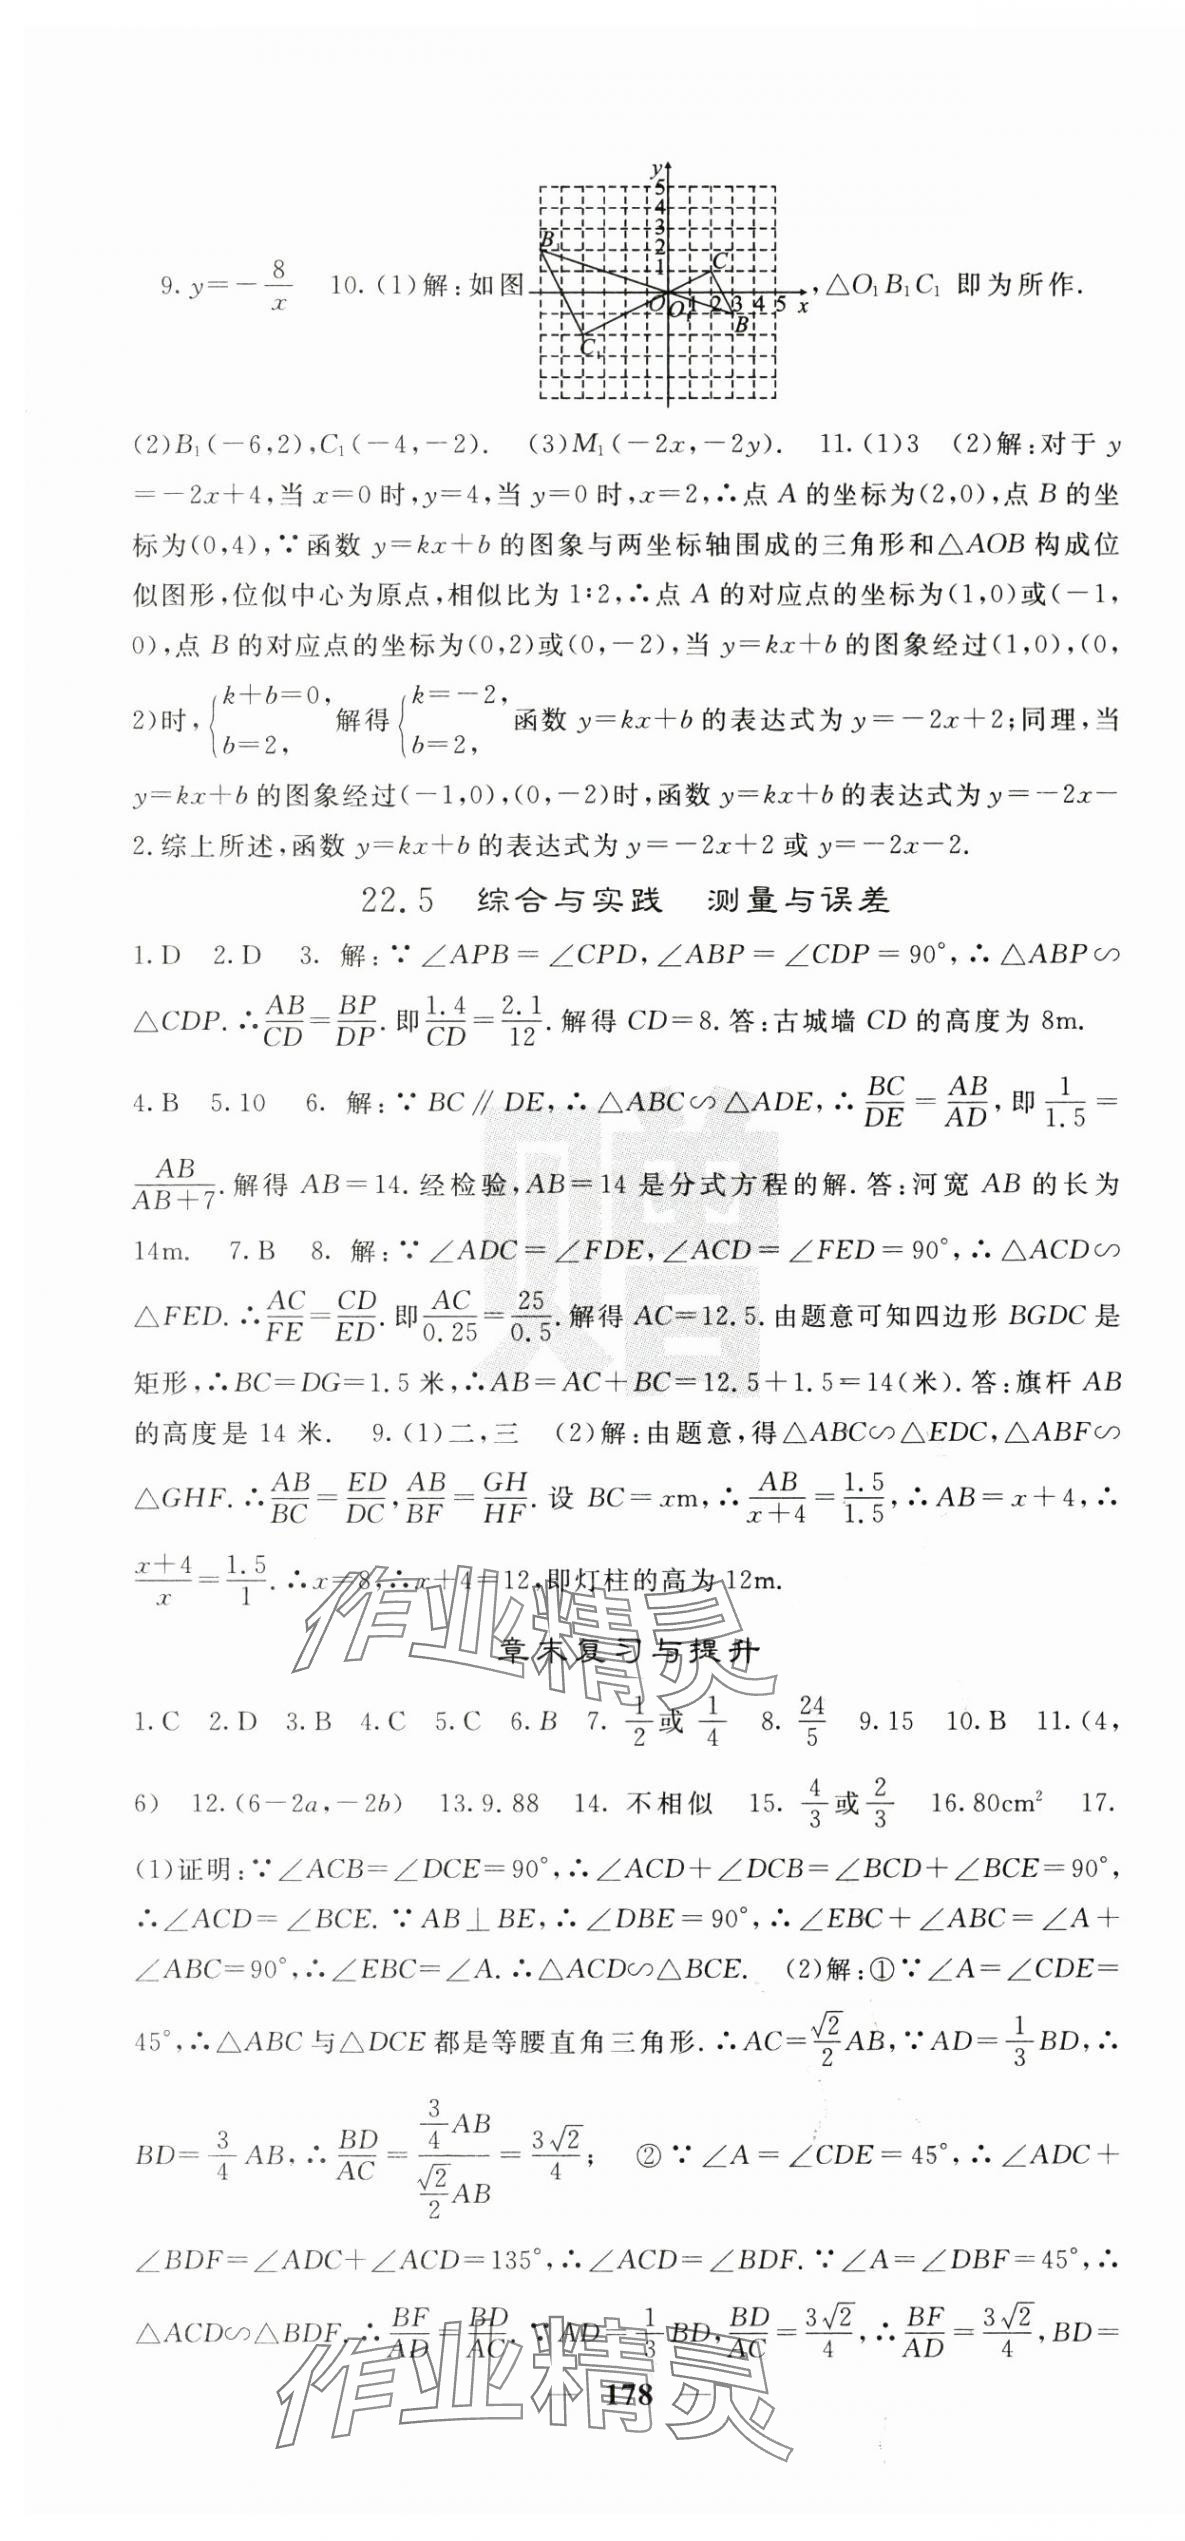 9. y=-8/x　10. (1)解:如图 y 5 4 3 2 1 B₁ C O O₁ 1 2 3 4 5 x B C₁ ,△O₁B₁C₁ 即为所作.
(2)B₁(-6,2),C₁(-4,-2).　(3)M₁(-2x,-2y).　11. (1)3　(2)解:对于 y
=-2x+4,当 x=0 时,y=4,当 y=0 时,x=2,∴点 A 的坐标为(2,0),点 B 的坐
标为(0,4),∵函数 y=kx+b 的图象与两坐标轴围成的三角形和△AOB 构成位
似图形,位似中心为原点,相似比为 1∶2,∴点 A 的对应点的坐标为(1,0)或(-1,
0),点 B 的对应点的坐标为(0,2)或(0,-2),当 y=kx+b 的图象经过(1,0),(0,
2)时,{k+b=0, b=2, 解得{k=-2, b=2, 函数 y=kx+b 的表达式为 y=-2x+2;同理,当
y=kx+b 的图象经过(-1,0),(0,-2)时,函数 y=kx+b 的表达式为 y=-2x-
2. 综上所述,函数 y=kx+b 的表达式为 y=-2x+2 或 y=-2x-2.
22.5　综合与实践　测量与误差
1. D　2. D　3. 解:∵∠APB=∠CPD,∠ABP=∠CDP=90°,∴△ABP∽
△CDP.∴AB/CD=BP/DP.即1.4/CD=2.1/12.解得 CD=8.答:古城墙 CD 的高度为 8m.
4. B　5. 10　6. 解:∵BC∥DE,∴△ABC∽△ADE,∴BC/DE=AB/AD,即1/1.5=
AB/(AB+7).解得 AB=14.经检验,AB=14 是分式方程的解.答:河宽 AB 的长为
14m.　7. B　8. 解:∵∠ADC=∠FDE,∠ACD=∠FED=90°,∴△ACD∽
△FED.∴AC/FE=CD/ED.即AC/0.25=25/0.5.解得 AC=12.5.由题意可知四边形 BGDC 是
矩形,∴BC=DG=1.5 米,∴AB=AC+BC=12.5+1.5=14(米).答:旗杆 AB
的高度是 14 米.　9. (1)二,三　(2)解:由题意,得△ABC∽△EDC,△ABF∽
△GHF.∴AB/BC=ED/DC,AB/BF=GH/HF.设 BC=xm,∴AB/(x+4)=1.5/1.5,∴AB=x+4,∴
(x+4)/x=1.5/1.∴x=8,∴x+4=12,即灯柱的高为 12m.
章末复习与提升
1. C　2. D　3. B　4. C　5. C　6. B　7. 1/2或1/4　8. 24/5　9. 15　10. B　11. (4,
6)　12. (6-2a,-2b)　13. 9.88　14. 不相似　15. 4/3或2/3　16. 80cm²　17.
(1)证明:∵∠ACB=∠DCE=90°,∴∠ACD+∠DCB=∠BCD+∠BCE=90°,
∴∠ACD=∠BCE.∵AB⊥BE,∴∠DBE=90°,∴∠EBC+∠ABC=∠A+
∠ABC=90°,∴∠EBC=∠A.∴△ACD∽△BCE.　(2)解:①∵∠A=∠CDE=
45°,∴△ABC 与△DCE 都是等腰直角三角形.∴AC=√2/2 AB,∵AD=1/3 BD,∴
BD=3/4 AB,∴BD/AC=(3/4 AB)/(√2/2 AB)=3√2/4;　②∵∠A=∠CDE=45°,∴∠ADC+
∠BDF=∠ADC+∠ACD=135°,∴∠ACD=∠BDF.∵∠A=∠DBF=45°,∴
△ACD∽△BDF.∴BF/AD=BD/AC.∵AD=1/3 BD,BD/AC=3√2/4,∴BF/AD=3√2/4,BD=
178
赠
作业精灵
作业精灵